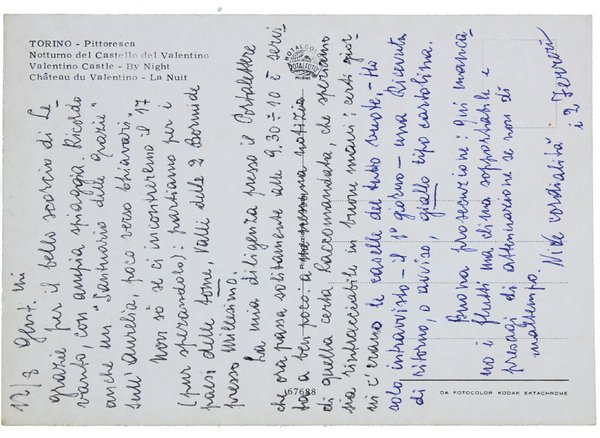 TORINO - Pittoresca
Notturno del Castello del Valentino
Valentino Castle - By Night
Château du Valentino - La Nuit
TOTALCOLOR
12/8 Gent.mi
grazie per il bello scorcio di Le-
vanto, con ampia spiaggia. Ricordo
anche un "Santuario delle Grazie"
sull'Aurelia, poco verso Chiavari.
Non so se ci incontreremo il 17
(pur sperandolo): partiamo per i
paesi delle tome, Valli delle 2 Bormide
presso Millesimo.
La mia diligenza presso il Portalettere
che ora passa solitamente alle 9.30÷10 è servi-
ta a ben poco a nessuna notizia
di quella certa Raccomandata, che speriamo
sia rintracciabile in buone mani: certi gior-
ni c'erano le caselle del tutto vuote. Ho
solo intravvisto - il 1° giorno - una Ricevuta
di ritorno, o avviso, giallo tipo cartolina.
Buona prosecuzione: qui manca-
no i flutti ma clima sopportabile e
presagi di attenuazione se non di
maltempo.
Vive cordialità
i 2 Ferreri
167688
DA FOTOCOLOR KODAK EKTACHROME